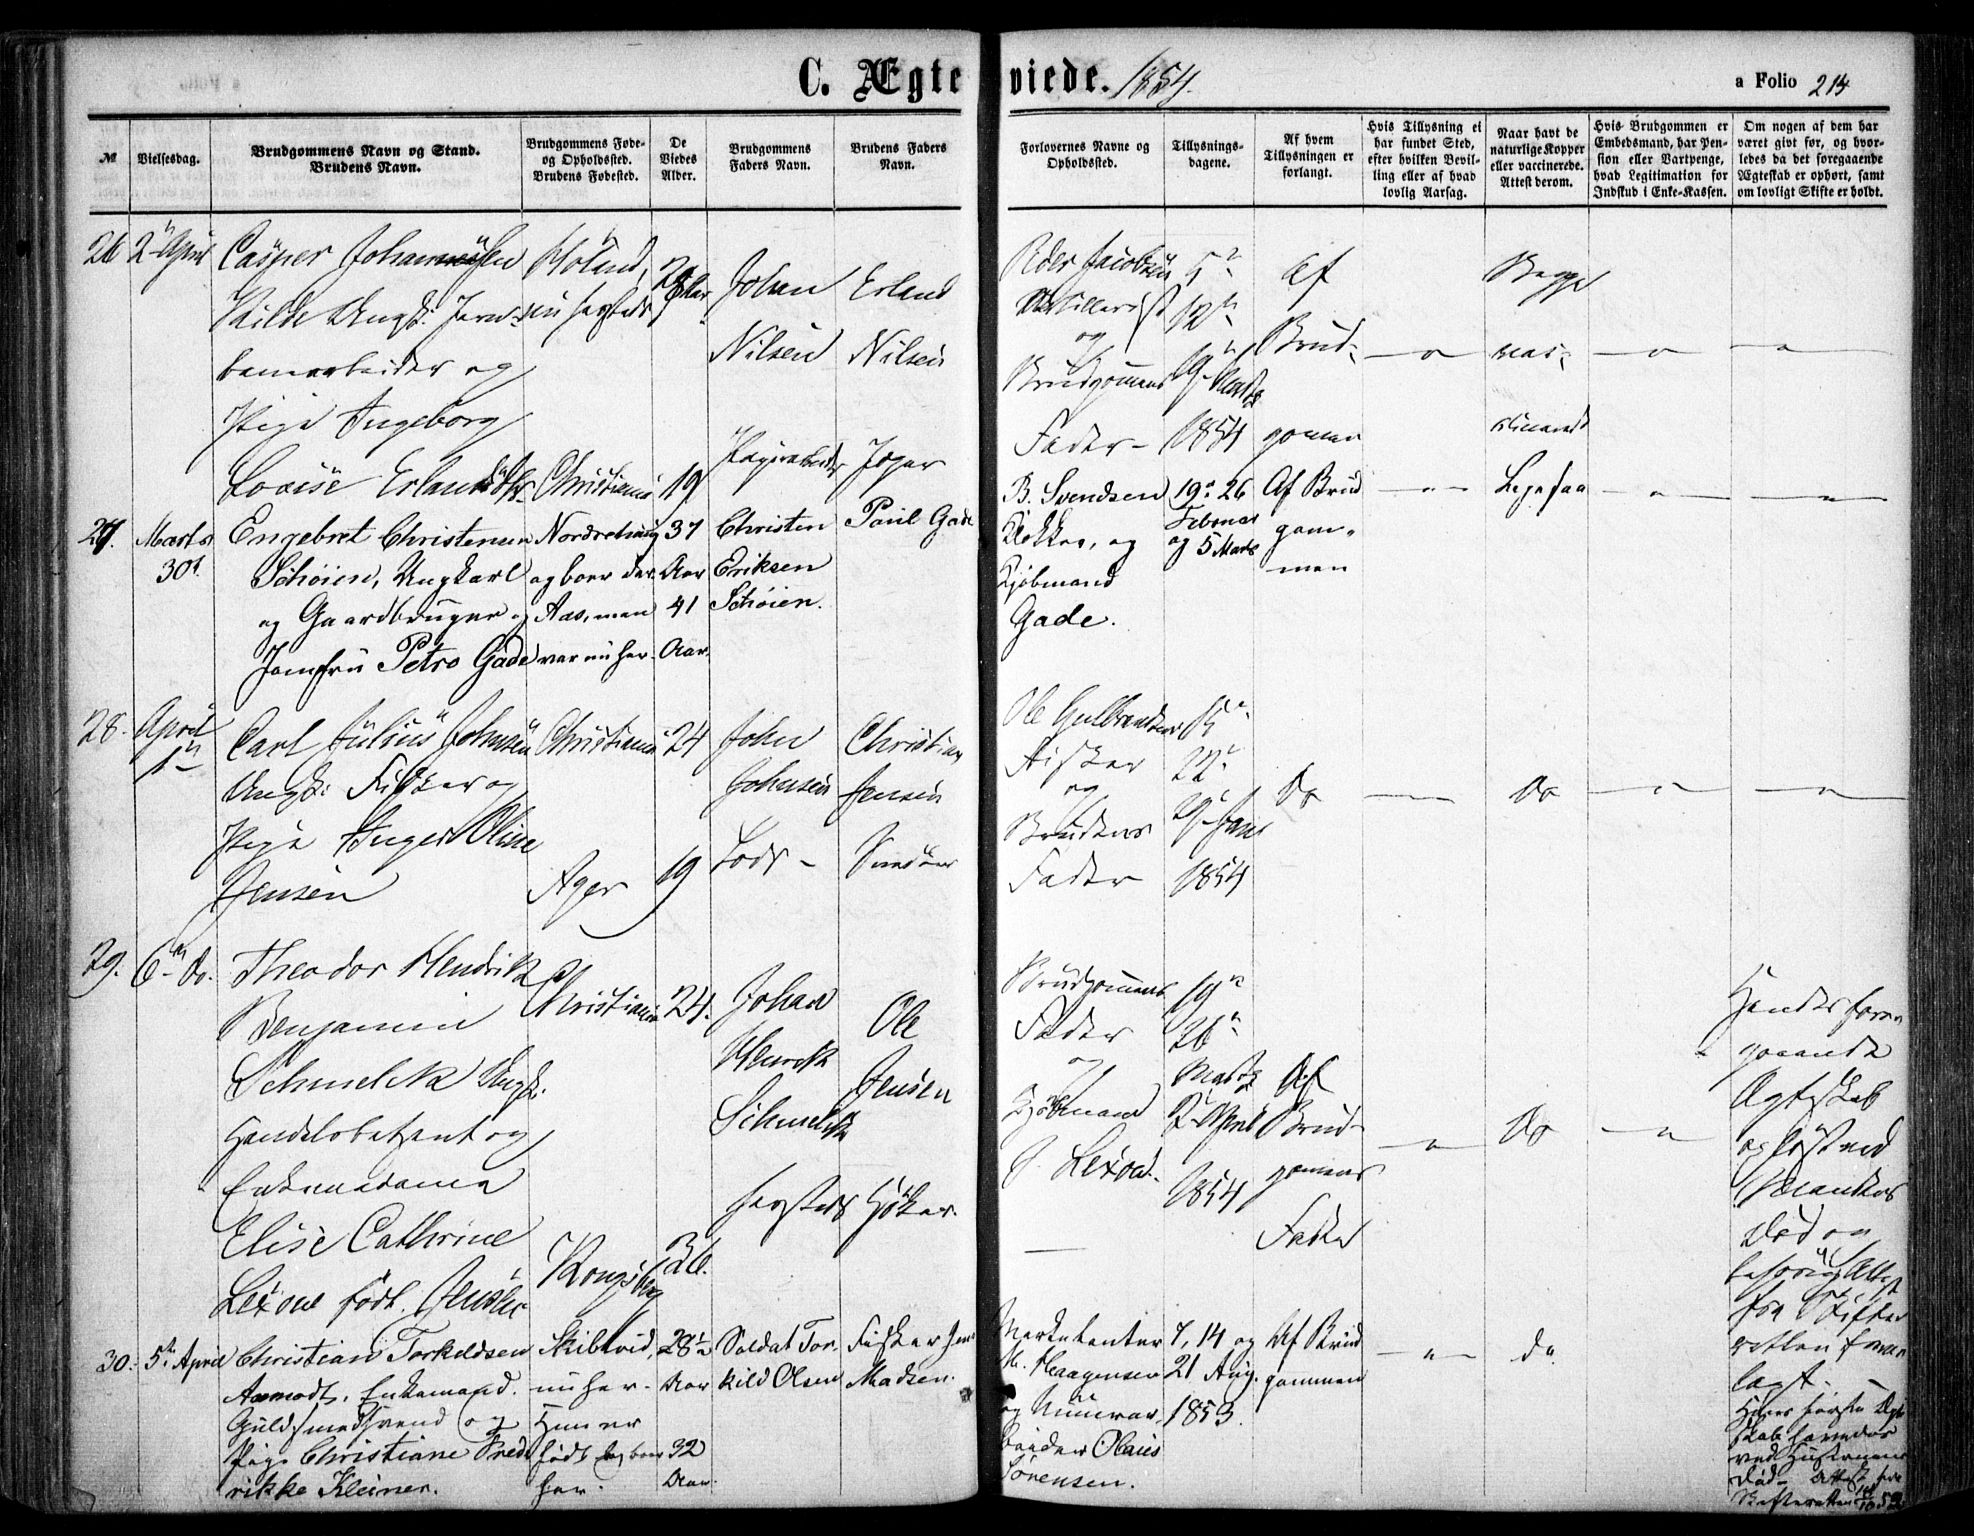 C. Ægteviede. 1854.
a Folio 214
№
Vielsesdag.
Brudgommens Navn og Stand.
Brudens Navn.
Brudgommens Føde-
og Opholdssted.
Brudens Fødested.
De
Viedes
Alder.
Brudgommens
Faders Navn.
Brudens Faders
Navn.
Forlovernes Navne og
Opholdssted.
Tillysnings-
dagene.
Af hvem
Tillysningen er
forlangt.
Hvis Tillysning ei
har fundet Sted,
efter hvilken Bevil-
ling eller af hvad
lovlig Aarsag.
Naar havt de
naturlige Kopper
eller vaccinerede.
Attest derom.
Hvis Brudgommen er
Embedsmand, har Pen-
sion eller Vartpenge,
hvad Legitimation for
Indskud i Enke-Kassen.
Om nogen af dem har
været gift før, og hvor-
ledes da det foregaaende
Ægteskab er ophørt, samt
om lovligt Skifte er holdt.
26 2n April
Casper Johannesen
Kilde Ungk. Jern-
banearbeider og
Pige Ingeborg
Lovise Erlandsdtr.
Høland,
Christiania
28 Aar
19
Johan
Nilsen
Erland
Nilsen
Peder Jacobsen
Artillerist
og
Brudgomens
Fader
5n
12n
19n Marts
1854
Af
Brud-
gomen
Begge
vac-
cinerede
27. Marts
30t.
Engebret Christensen
Schøien, Ungkarl
og Gaardbruger og
Jomfru Petro Gade
og boer der.
Aas, men
var nu her.
37
Aar
41
Aar.
Christen
Eriksen
Schøien.
Paul Gade
B. Svendsen
Klokker, og
Kjøbmand
Gade.
19n 26
Februar
og 5 Marts
Af Brud
gom-
men
Ligesaa
28. April
1n
Carl Julius Johnsen
Ungk. Fisker og
Pige Inger Oline
Jensen
Christiania
Ager
24
19
John
Johnsen
Lods
Christian
Jensen
Ole Gulbrandsen
Fisker
og
Brudens
Fader
15n
22n
29n Jan
1854
Do
Do
29. 6n do.
Theodor Hendrik
Benjamin
Schmelck Ungk.
Handelsbetjent og
Enkemadame
Elise Cathrine
Lexow født Jensen
Christiania
Kongsberg
24.
36.
Johan
Henrik
Schmelck
Ole
Jensen
Høker.
Brudgomens
Fader
og
Kjøbmand
Lexow.
19n
26n
Marts
2n April
1854
Af
Brud-
gomens
Fader
Do
Hendes fore
gaaende
Ægteskab
opløst ved
Mandens
Død og
behørig Attest
fra Skifte
retten frem
lagt.
30. 5te April
Christian Torkeldsen
Aamodt, Enkemand.
Guldsmedsvend og
Pige Christiane Fred
rikke Kleiner.
Skibtvid,
nu her.
Hun er
født og boer
her.
28½
Aar
32
Aar.
Soldat Tor-
kild Olsen
Fisker Jens
Madsen.
Marketenter
M. Haagensen
og Muurar-
beider Olaus
Sørensen.
7, 14 og
21 Aug.
1853.
Af Brud
gommen
do
Hans første Ægte
skab hævedes
ved Hustruens
Død. Attest fra
Skifteretten